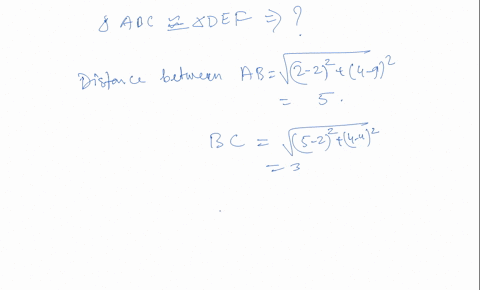 △ ABC ≅ △DEF ⇒ ?
Distance between AB = √(2-2)²+(4-9)²
= 5.
BC = √(5-2)²+(4-4)²
= 3